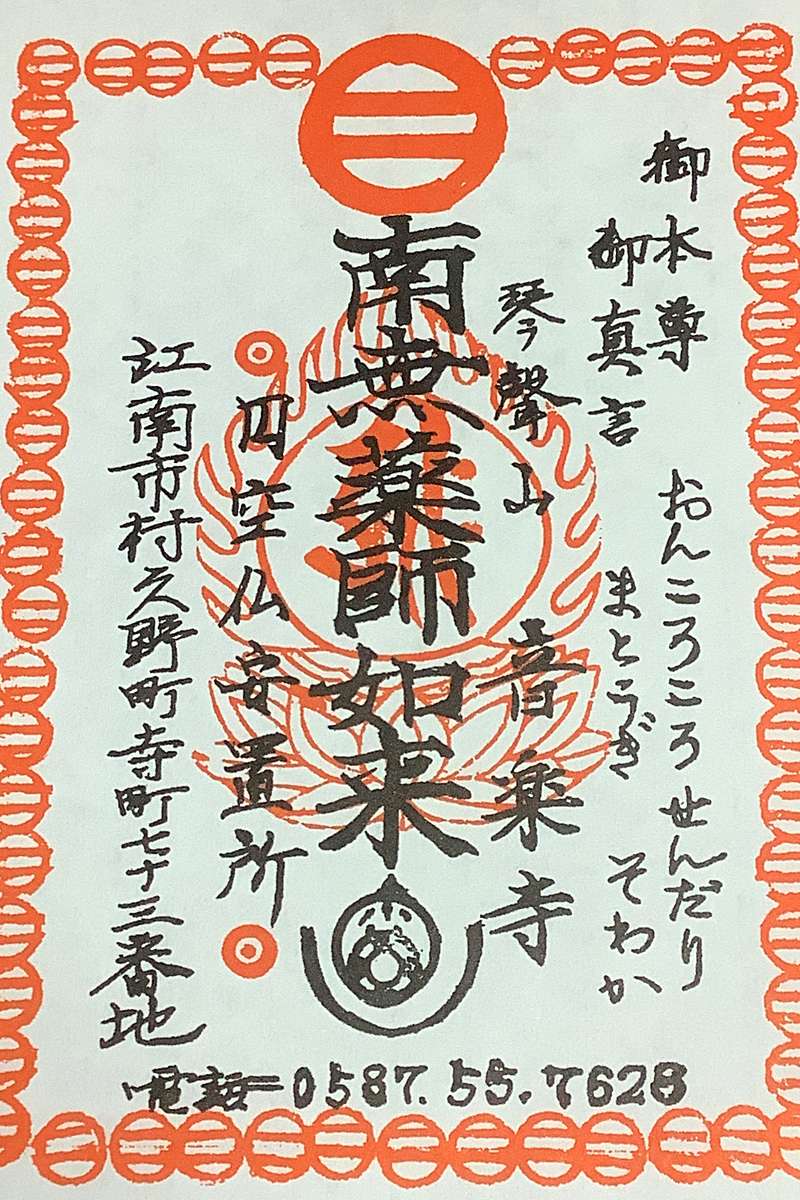 御本尊
御真言
おんころころせんだり
まとうぎ そわか
琴声山 音楽寺
南無薬師如来
円空仏安置所
江南市村久野町寺町七十三番地
電話 0587.55.7628